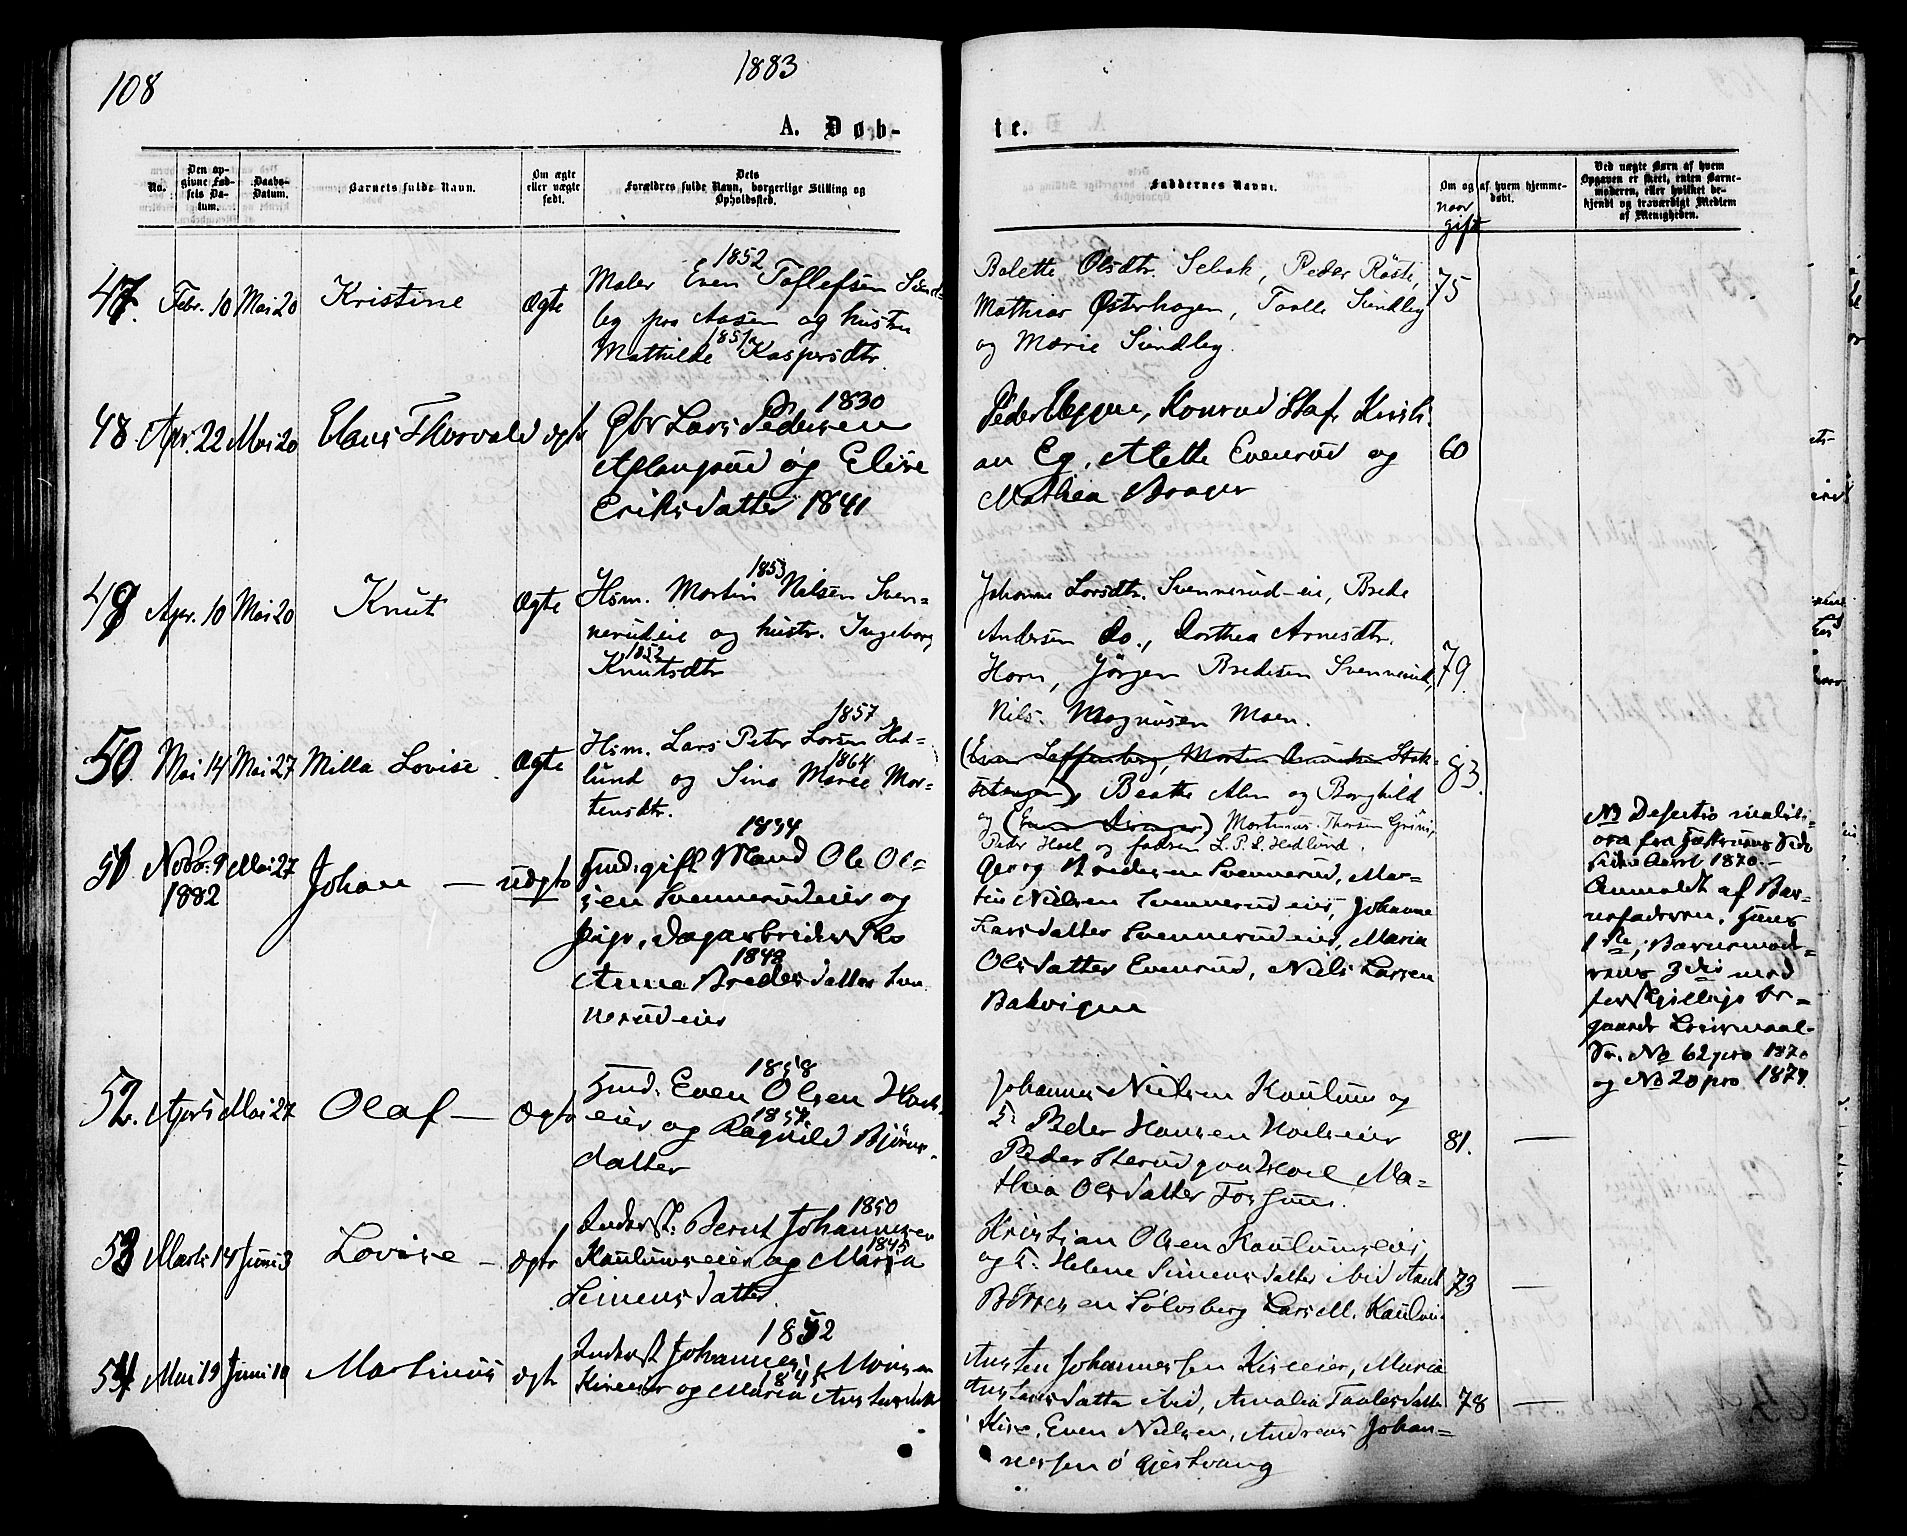 108
1883
A. Døb-
te.
No.
Den op-
givne Fød-
sels Da-
tum.
Daabs-
Datum.
Barnets fulde Navn.
Om ægte
eller uægte
født.
Dets
Forældres fulde Navn, borgerlige Stilling og
Opholdssted.
Faddernes Navne.
Om og af hvem hjemme-
døbt.
naar
gift
Ved uægte Børn af hvem
Opgaven er skeet, enten Barne-
moderen, eller hvilket be-
kjendt og troværdigt Medlem
af Menigheden.
47. Febr. 10 Mai 20 Kristine Ægte
1852
Maler Even Toflefsen Sund-
by pro Aasen og hustru
1851
Mathilde Kaspersdtr.
Bolette Olsdtr. Sebak, Peder Røste,
Mathias Østerhagen, Taale Sundby
og Marie Sundby.
75
48 Apr. 22 Mai 20 Claus Thorvald ægte
1830
Gbr Lars Pedersen
Aslangsrud og Elise
Eriksdatter 1841
Peder Elggne, Konrad Staf, Kristi-
an Eg, Alette Evenrud og
Mathea Brager
60
49 Apr. 10 Mai 20 Knut Ægte
1853
Hsm. Martin Nilsen Sven-
nerudeie og hustr. Ingeborg
1852
Knutsdtr
Johanne Larsdtr. Svennerud-eie, Brede
Andersen Do., Dorthea Arnesdtr.
Horn, Jörgen Bredesen Svennerud,
Nils Magnusen Moen.
79.
50. Mai 14 Mai 27 Milla Lovise. Ægte
1857
Hsm. Lars Peter Larsen Hed-
1864
lund og Sina Marie Mor-
tensdtr.
stangen), Beathe Alm og Borghild
og Mortinus Thorsen Grini,
Peder Hoel og faderen L. P. L. Hedlund.
83.
51 Novbr. 9 Mai 27
1882
Johan — uægte
1834
Inds. gift Mand Ole Ol-
sen Svennerudeier og
Pige, dagarbeiderske
1848
Anne Bredesdatter Sven
nerudeier
Georg Bredesen Svennerud, Mar-
tin Nielsen Svennerudeier, Johanne
Larsdatter Svennerudeier, Maria
Olsdatter Evenrud, Niels Larsen
Bakvigne
No
ora fra
Aaret 1870.—
Anmeldt af Bar-
nefaderen. Hans
1ste, Barnemod-
rens 3die med
forskjellige be-
gaaede Leiermaal.
Se. No 62 pro 1870
og No 20 pro 1874.
52. Apr 5 Mai 27 Olaf — Ægte
1858
Inds. Even Olsen Hoels-
1854
eier og Ragnild Bjørns-
datter
Johannes Nielsen Kaulum og
Peder Hansen Hoelseier
Peder Sterud paa Hoel, Ma-
thea Olsdatter
81. —
53 Marts 14 Juni 3 Lovise — ægte
1850
Inderst: Bernt Johannesen
1845
Kaulumseier og Maria
Simensdatter
Kristian Olsen Kaulumseier
og F. Helene Simensdatter ibid
Børresen Sølvsberg Lars M. Kaulum
73 —
54 Mai 13 Juni 10 Martinus ægte
1852
Inderst Johannes
1845
Kiseeier og Maria
Austen Johannessen Kiseeier, Maria
ibid, Amalia Taalesdatter
Kise, Even Nielsen, Andreas Johan-
nessen ö Gjestvang
78 —